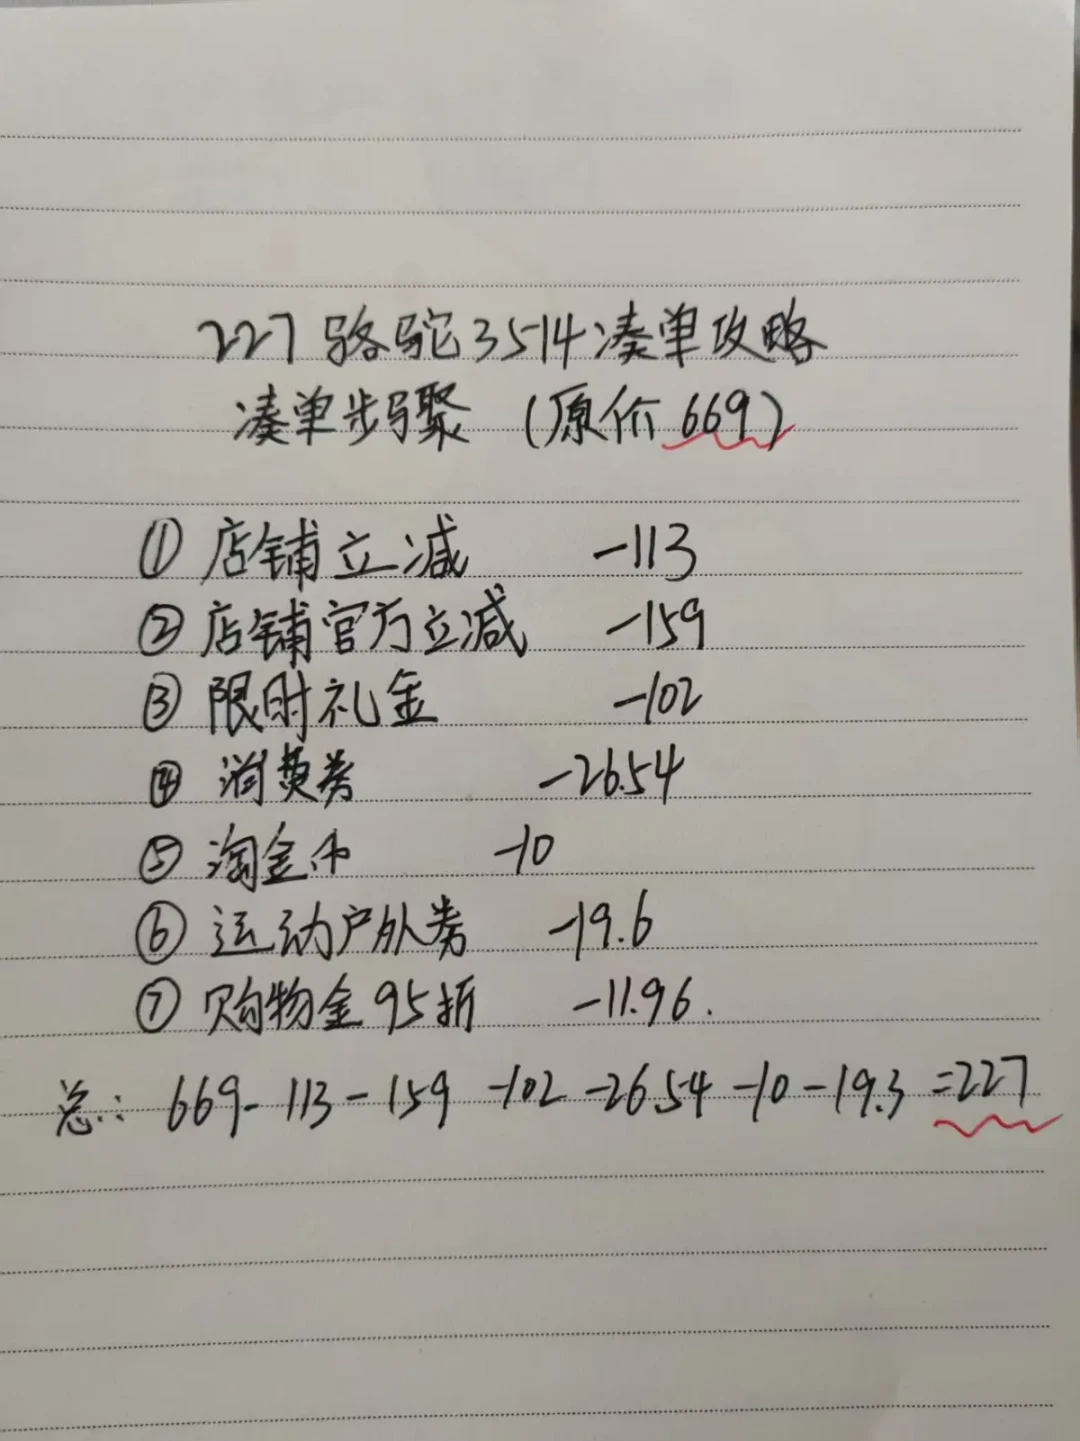 227骆驼3514凑单攻略
凑单步骤（原价669）
① 店铺立减 -113
② 店铺官方立减 -159
③ 限时礼金 -102
④ 消费券 -26.54
⑤ 淘金币 -10
⑥ 运动户外券 -19.6
⑦ 购物金95折 -11.96.
总：: 669-113-159-102-26.54-10-19.3=227